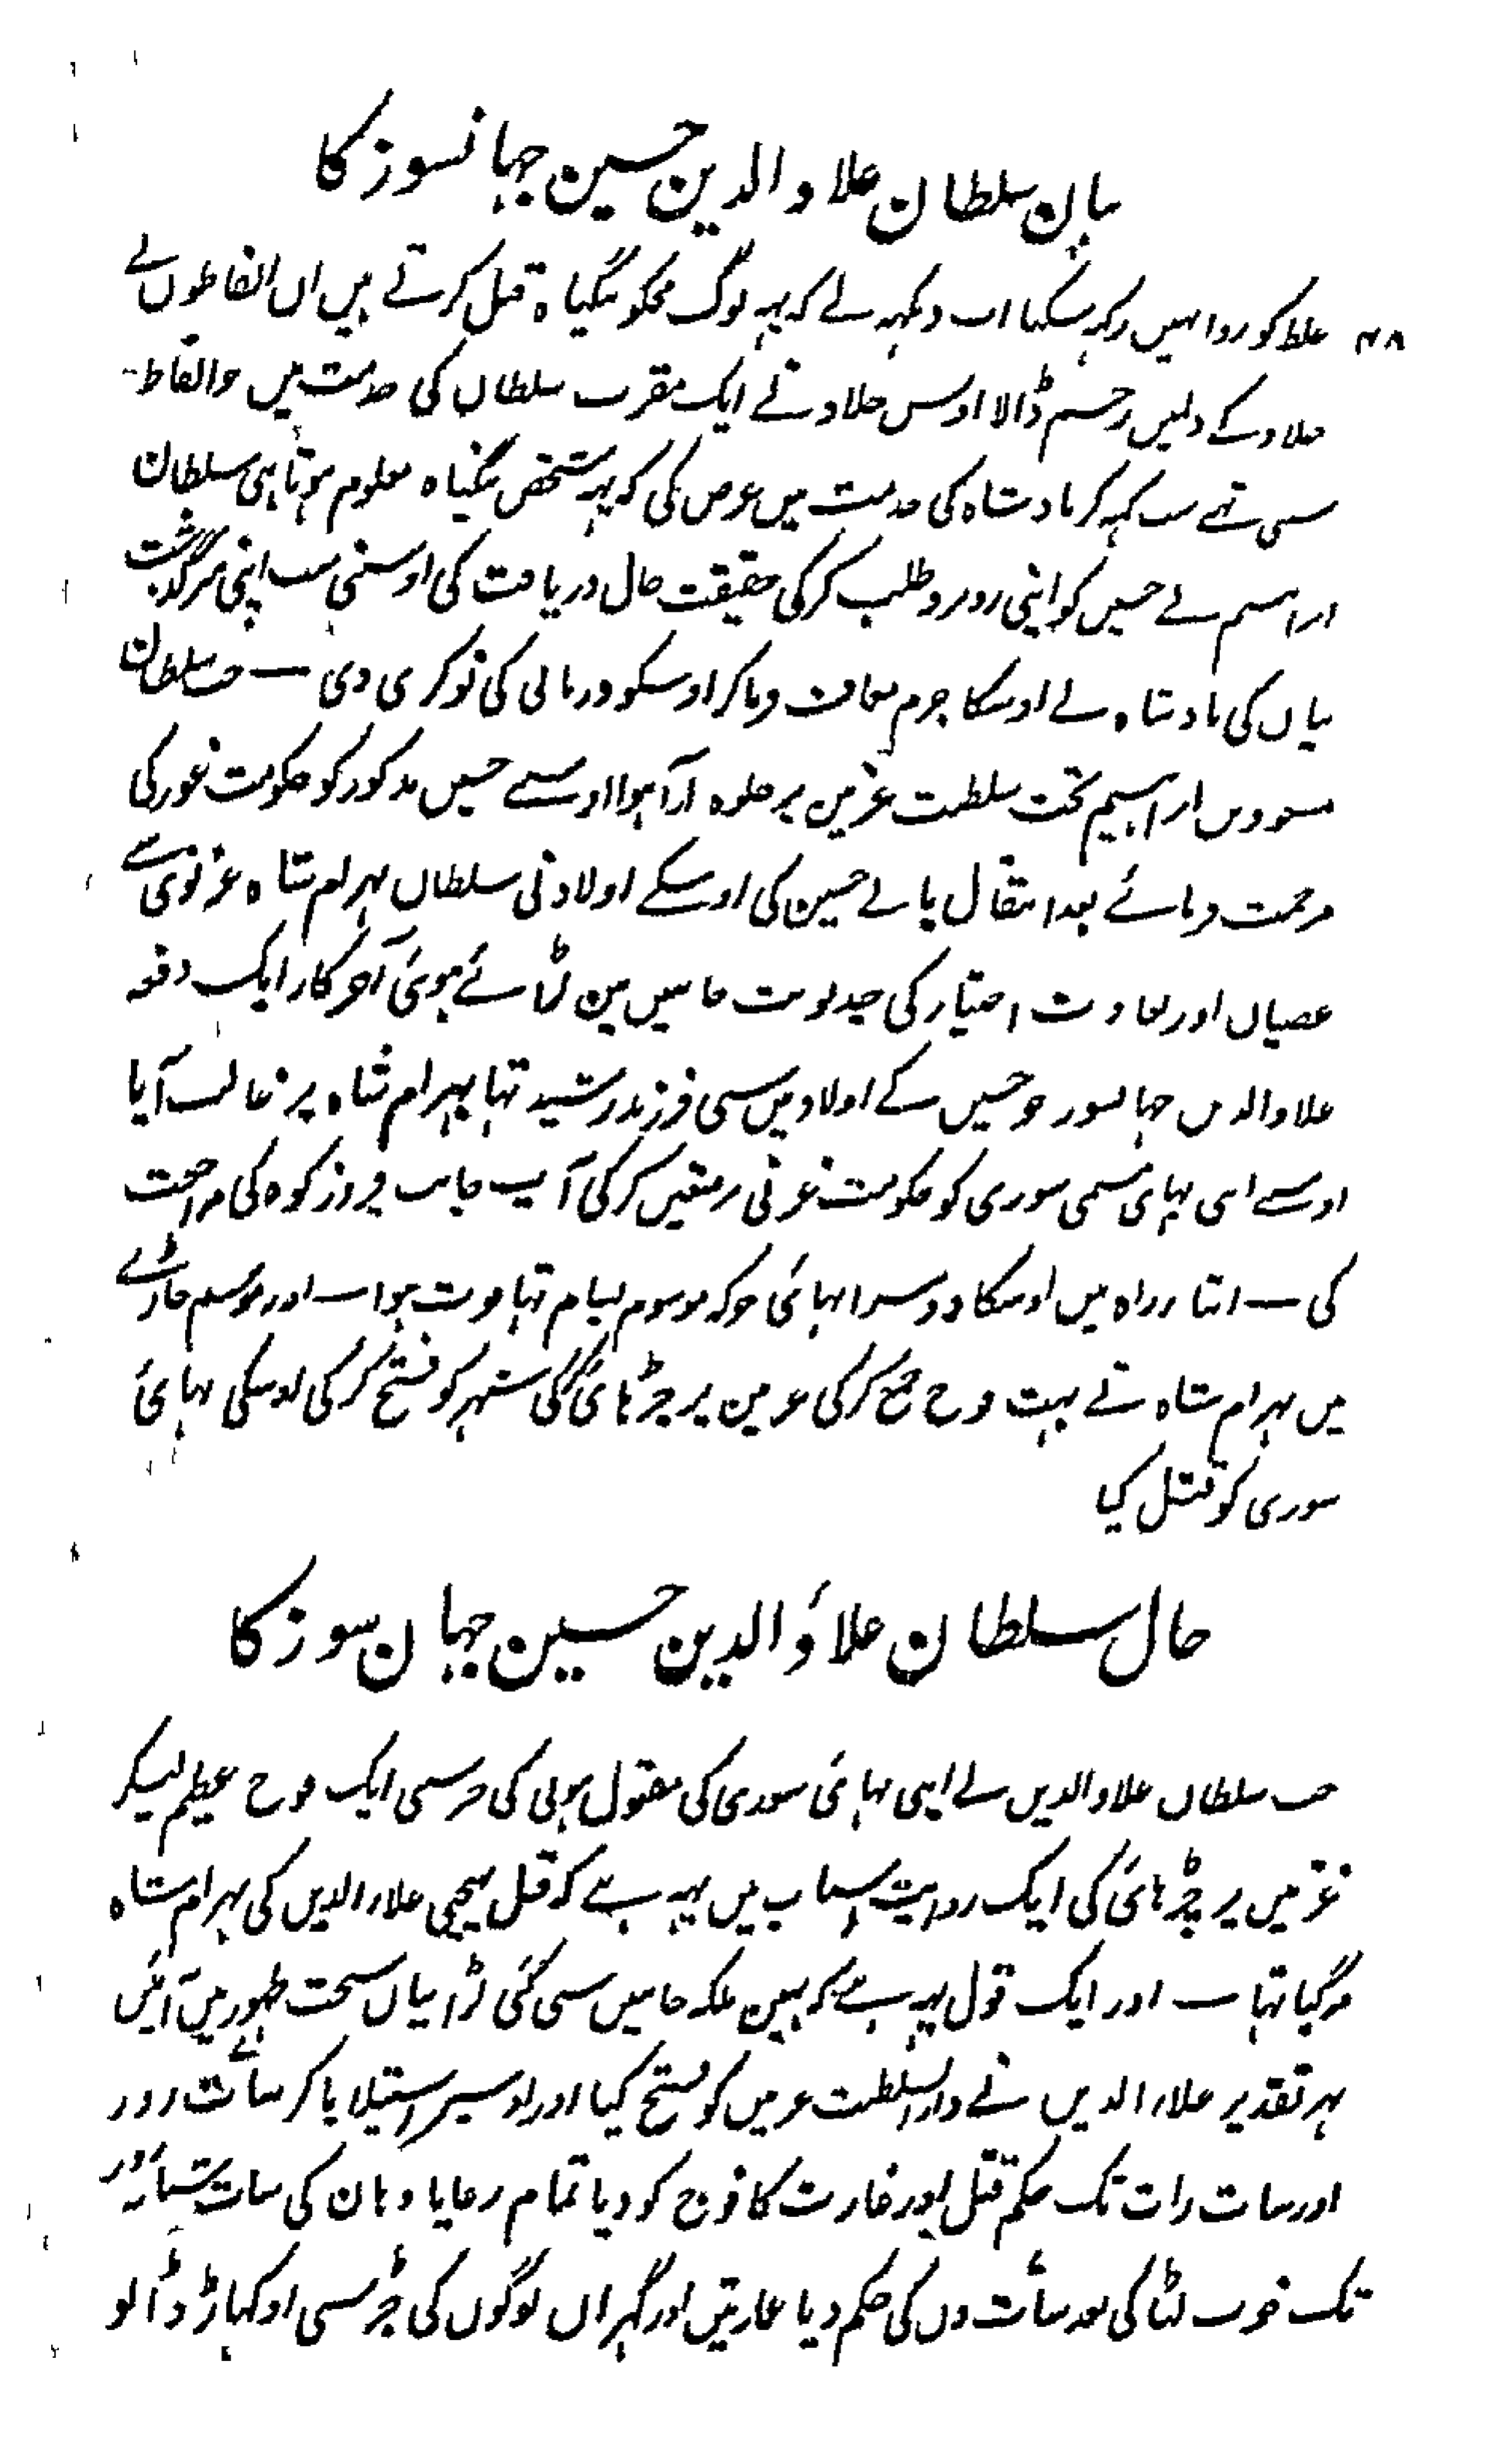 بیان سلطان علاوالدین حسین جہانسوز کا
۴۸ غلط کو روا نہیں رکہہ سکتا اب دیکہہ لے کہ یہہ لوگ مجکو بیگناہ قتل کرتے ہیں ان الفاظوں نے
جلاد کے دلیں رحم ڈالا اوس جلاد نے ایک مقرب سلطان کی خدمت میں جو الفاظ
سنی تہے سب کہہ کر بادشاہ کی خدمت میں عرض کی کہ یہہ شخص بیگناہ معلوم ہوتا ہی سلطان
ابراہیم نے حسین کو اپنی روبرو طلب کرکی حقیقت حال دریافت کی اوسنی سب اپنی سرگذشت
بیان کی بادشاہ نے اوسکا جرم معاف فرماکر اوسکو دربانی کی نوکری دی — جب سلطان
مسعود بن ابراہیم تخت سلطنت غزنین پر جلوہ آرا ہوا اوسنے حسین مذکور کو حکومت غور کی
مرحمت فرمائے بعد انتقال پانے حسین کی اوسکے اولاد نی سلطان بہرام شاہ غزنوی سے
عصیان اور بغاوت اختیار کی چند نوبت جانبین مین لڑائے ہوئی آخرکار ایک دفعہ
علاوالدین جہانسوز جو حسین کے اولاد میں سی فرزند رشید تہا بہرام شاہ پر غالب آیا
اوسنے اپنی بہای مسمی سوری کو حکومت غزنی پر متعین کرکی آپ جانب فیروز کوہ کی مراجعت
کی — اثنا رراہ میں اوسکا دوسرا بہائی جوکہ موسوم بسام تہا فوت ہوا — اور موسم جاڑے
میں بہرام شاہ نے بہت فوج جمع کرکی غزنین پر چڑہائی کی شہر کو فتح کرکی اوسکی بہائی
سوری کو قتل کیا
حال سلطان علاؤالدین حسین جہان سوز کا
جب سلطان علاوالدین نے اپنی بہائی سوری کی مقتول ہونی کی خبر سنی ایک فوج عظیم لیکر
غزنین پر چڑہائی کی ایک روایت اسباب میں یہہ ہے کہ قبل پہنچنی علاءالدین کی بہرام شاہ
مرگیا تہا — اور ایک قول یہہ ہے کہ نہین بلکہ جانبین سی کئی لڑائیاں سخت ظہور میں آئیں
بہر تقدیر علاءالدین نے دارالسلطنت غزنین کو فتح کیا اور اوسپر استیلا پاکر سات روز
اور سات رات تک حکم قتل اور غارت کا فوج کو دیا تمام رعایا وہان کی سات شبانہ روز
تک خوب لٹاکی بعد سات دن کی حکم دیا عمارتیں اور گہران لوگوں کی جڑ سی اوکہاڑ ڈالو